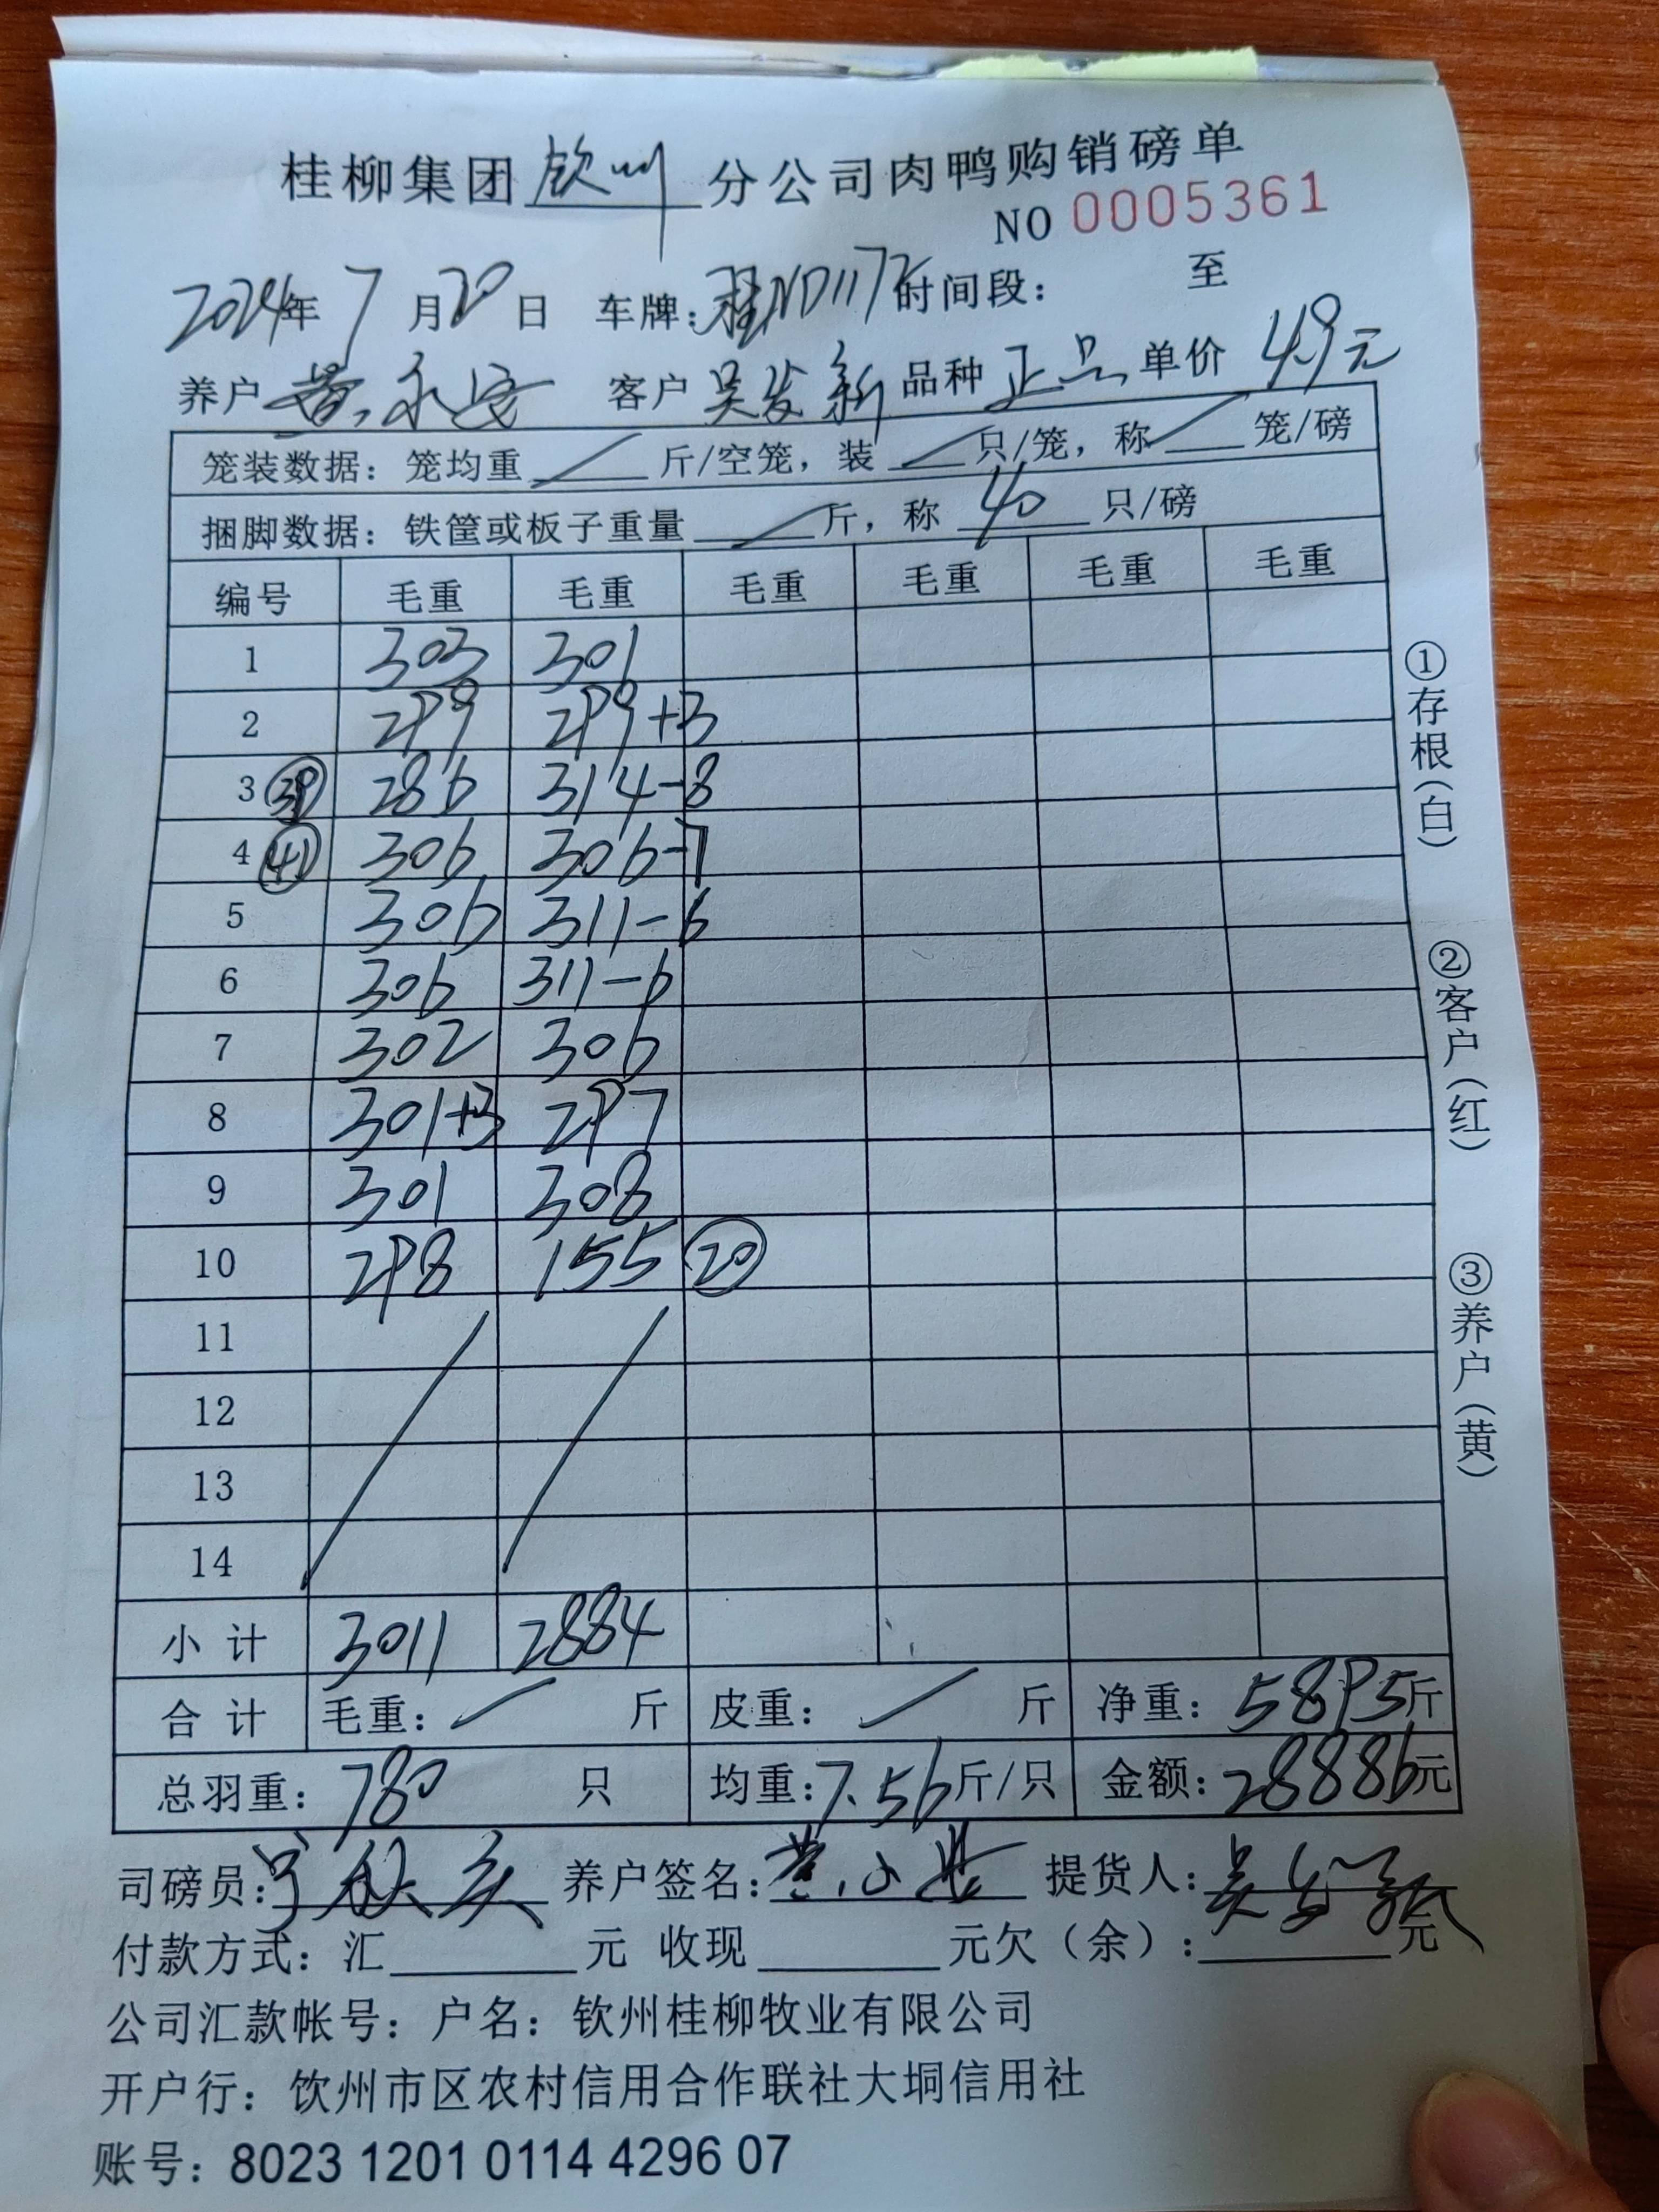 桂柳集团钦州分公司肉鸭购销磅单
NO 0005361
2024年 7 月 20 日 车牌:桂ND117 时间段: 至
养户 黄永安 客户 吴发新 品种 正品 单价 4.9元
笼装数据: 笼均重 / 斤/空笼, 装 / 只/笼, 称 / 笼/磅
捆脚数据: 铁筐或板子重量 / 斤, 称 40 只/磅
编号 毛重 毛重 毛重 毛重 毛重 毛重
1 303 301
2 299 299+3
3 ㊴ 286 314-8
4 ㊶ 306 306-7
5 306 311-6
6 306 311-6
7 302 306
8 301+3 297
9 301 308
10 298 155 ⑳
11
12
13
14
小 计 3011 2884
合 计 毛重: / 斤 皮重: / 斤 净重: 5895斤
总羽重: 780 只 均重:7.56斤/只 金额:28886元
司磅员: 养户签名: 提货人:吴发新
付款方式: 汇 元 收现 元欠(余): 元
公司汇款帐号: 户名: 钦州桂柳牧业有限公司
开户行: 钦州市区农村信用合作联社大垌信用社
账号: 8023 1201 0114 4296 07
①存根(白)
②客户(红)
③养户(黄)